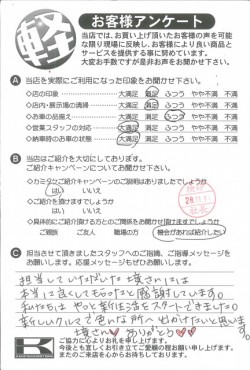 軽
お客様アンケート
当店では、お買い上げ頂いたお客様の声を可能
な限り現場に反映し、お客様により良い商品と
サービスを提供する事に努めています。
大変お手数ですが是非お声をお聞かせ下さい。
A 当店を実際にご利用になった印象をお聞かせ下さい。
◇店の印象 大満足 満足 ふつう やや不満 不満
◇店内・展示場の清掃 大満足 満足 ふつう やや不満 不満
◇お車の品揃え 大満足 満足 ふつう やや不満 不満
◇営業スタッフの対応 大満足 満足 ふつう やや不満 不満
◇納車時のお車の状態 大満足 満足 ふつう やや不満 不満
B 当店はご紹介を大切にしております。
ご紹介キャンペーンについてお聞かせ下さい。
◇カミタケご紹介キャンペーンのご説明はありましたでしょうか
はい いいえ
◇ご紹介を頂けますでしょうか
はい いいえ
◇具体的にご紹介頂ける方とのご関係をお聞かせ頂けますでしょうか
ご親族 ご友人 職場の方 機会があれば紹介したい
C 担当させて頂きましたスタッフへのご指摘、ご指導メッセージを
お願いします。応援メッセージもぜひお願いします。
担当していただいた
本当に良くしてもらったと感謝しています。
私たちは やっと新生活をスタートできました
新しいクルマで色んな所へ出かけたいと思います。
ありがとう♡♡
ご協力に心よりお礼を申し上げます。
今後とも宜しくお引き立てご愛顧の程お願い申し上げます。
またのご来店を心からお待ちしております。